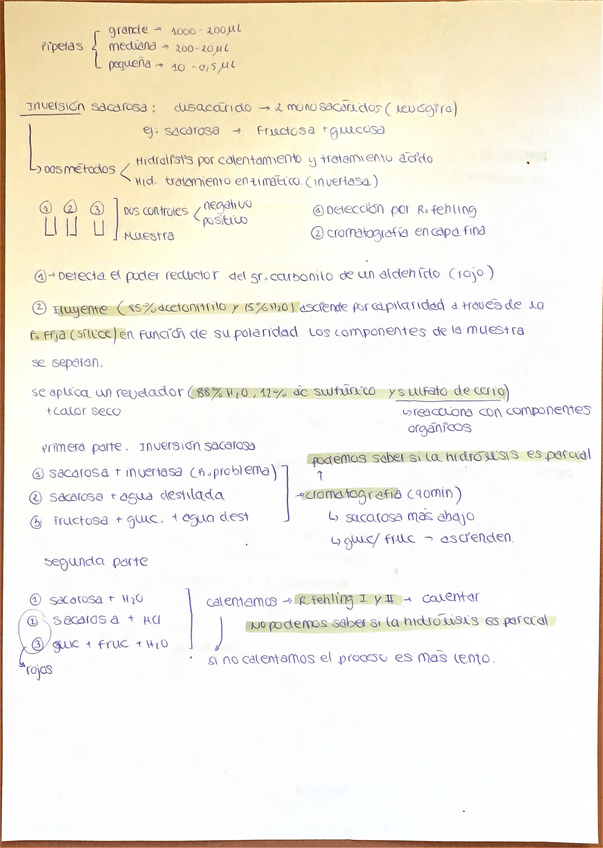 Pipetas { grande → 1000-200 µl
mediana → 200-20 µl
pequeña → 10 - 0,5 µl
Inversión sacarosa: disacárido → 2 monosacáridos (levógira)
ej. sacarosa → Fructosa + glucosa
↳ Dos métodos < Hidrólisis por calentamiento y tratamiento ácido
Hid. tratamiento enzimático (invertasa)
① ② ③ ] Dos controles < negativo
positivo
Muestra
① Detección por R. fehling
② cromatografía en capa fina
① → Detecta el poder reductor del gr. carbonilo de un aldehído (rojo)
② Eluyente (85% acetonitrilo y 15% H₂O) asciende por capilaridad a través de la
F. Fija (sílice) en función de su polaridad. Los componentes de la muestra
se separan.
se aplica un revelador (88% H₂O, 12% ác sulfúrico y sulfato de cerio)
+ calor seco
↳ reacciona con componentes
orgánicos
Primera parte. Inversión sacarosa
podemos saber si la hidrólisis es parcial
↑
① sacarosa + invertasa (M. problema)
② sacarosa + agua destilada
③ fructosa + gluc. + agua dest
→ cromatografía (90 min)
↳ sacarosa más abajo
↳ gluc/ fruc → ascienden.
segunda parte
① sacarosa + H₂O
② sacarosa + HCl
③ gluc + fruc + H₂O
rojos
calentamos → R. fehling I y II → calentar
NO podemos saber si la hidrólisis es parcial
si no calentamos el proceso es más lento.